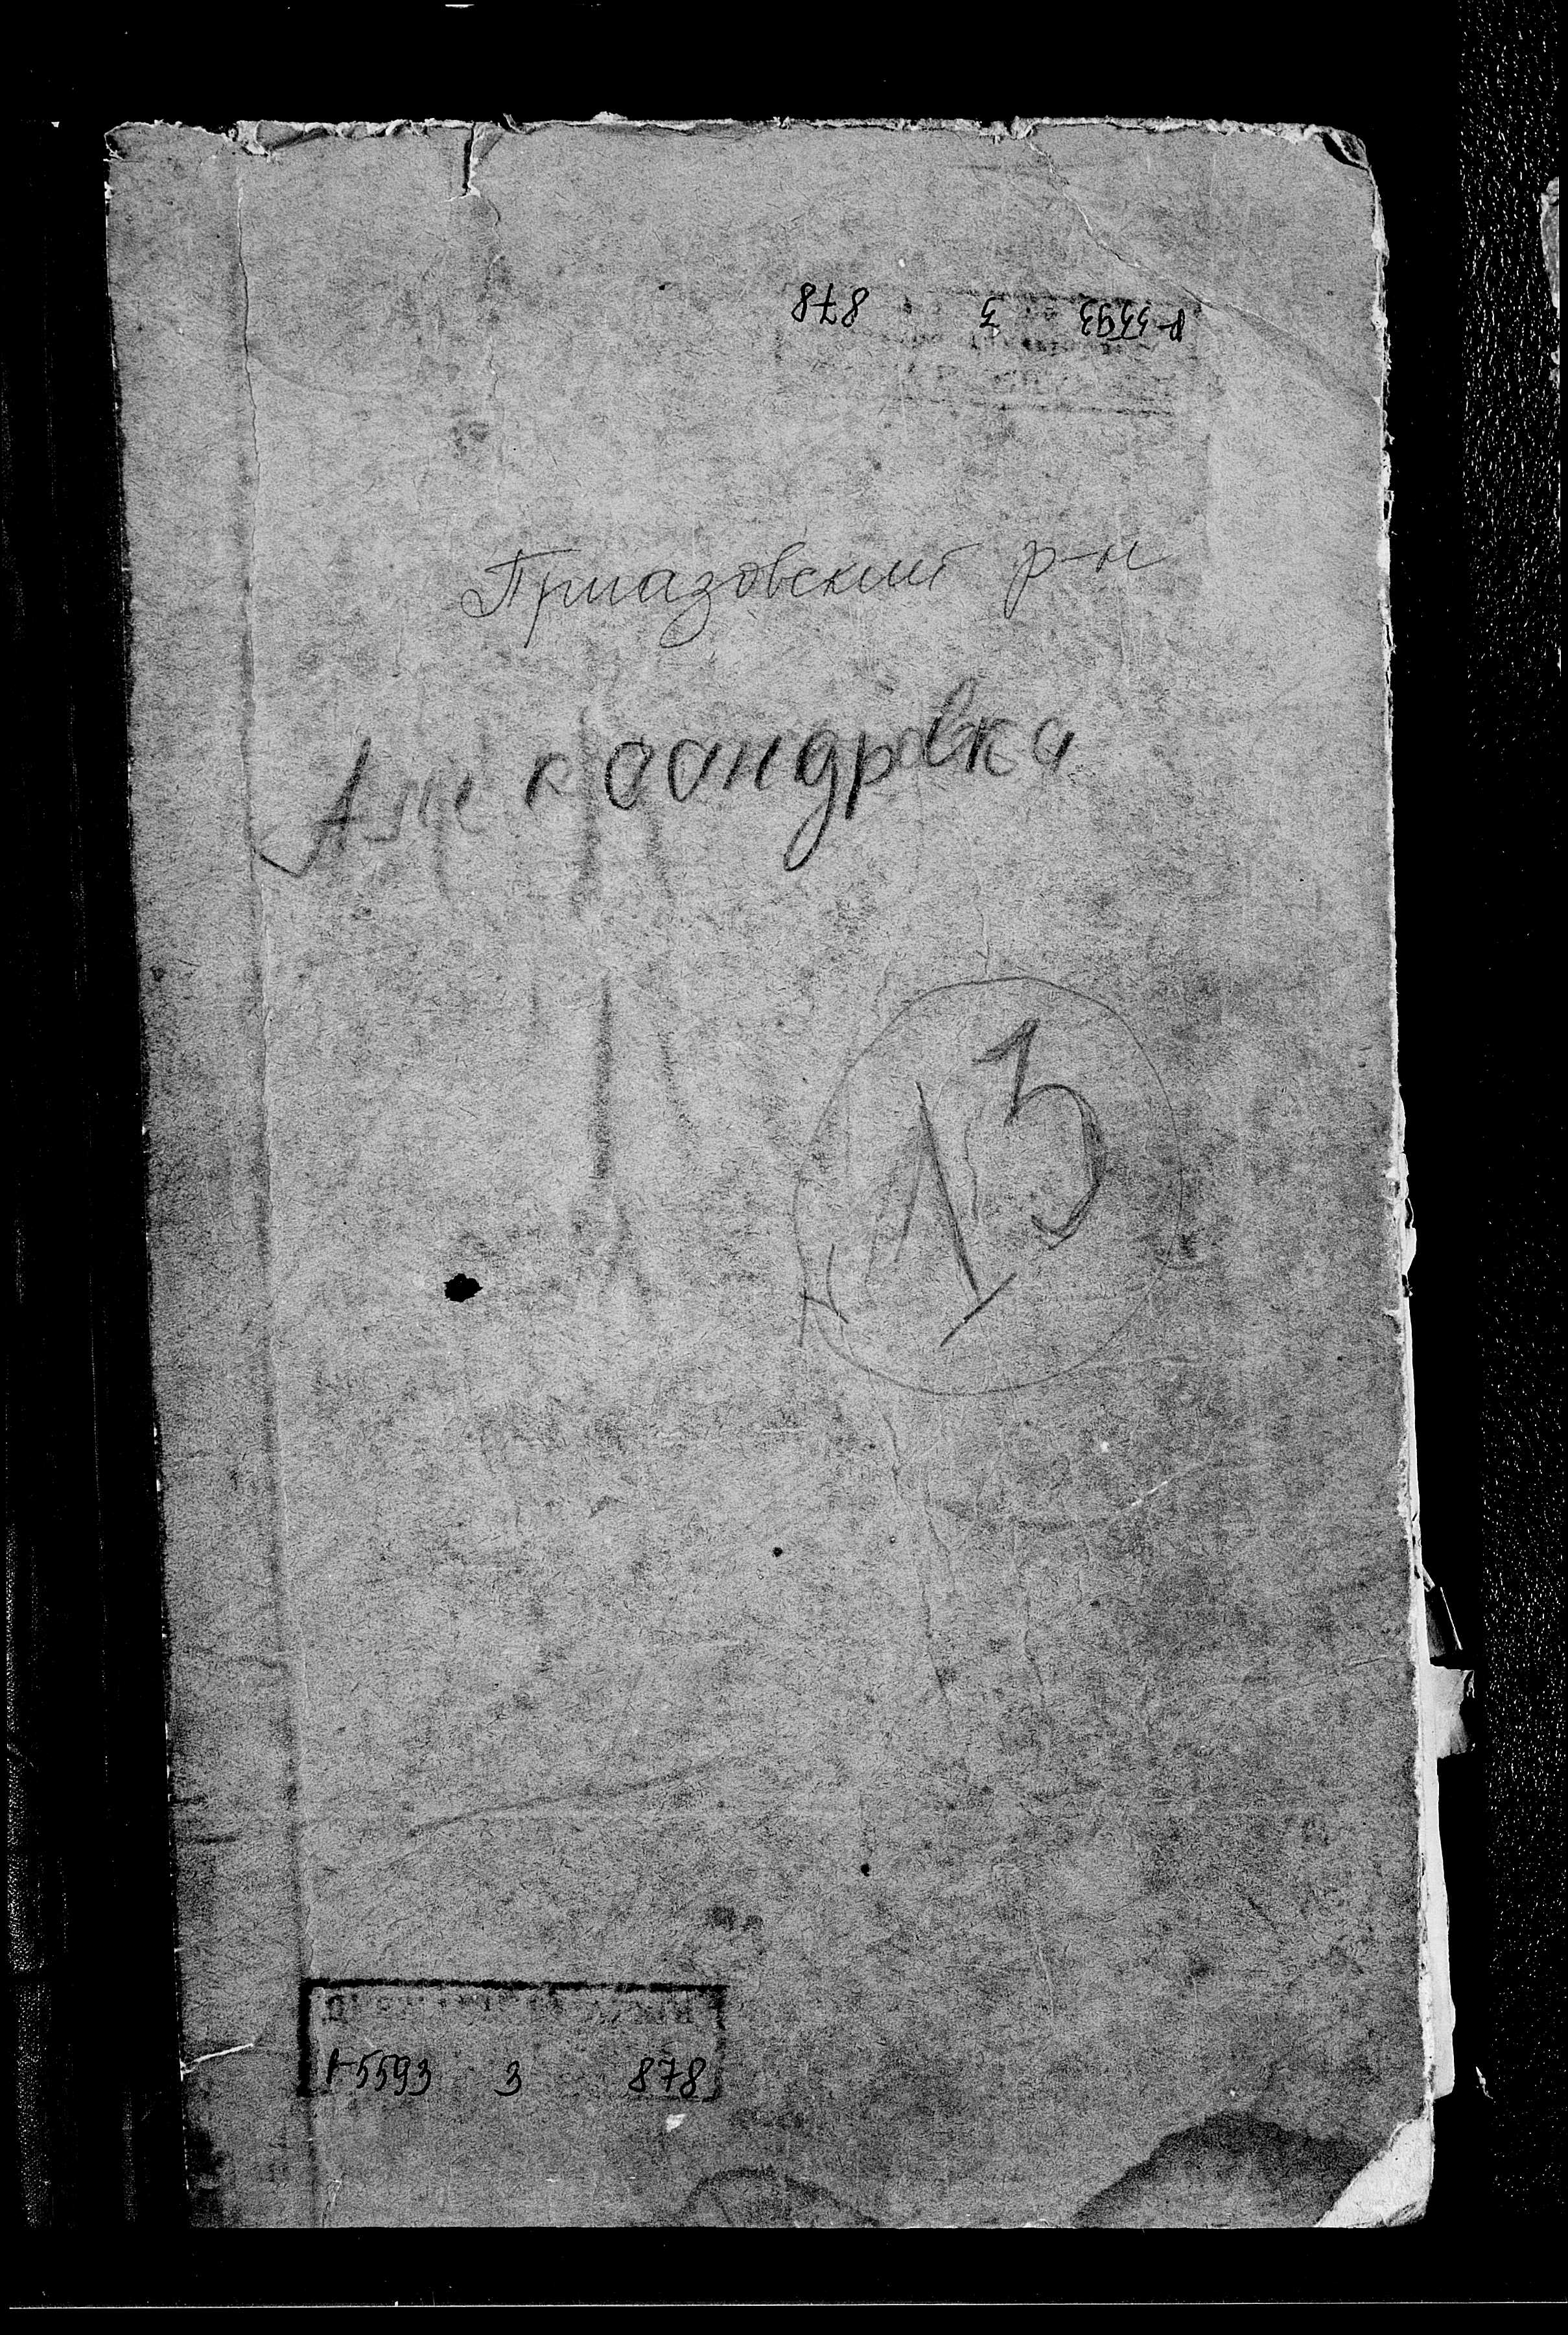 Р-5593 3 878
Приазовский р-н
Александровка
13
Р-5593 3 878